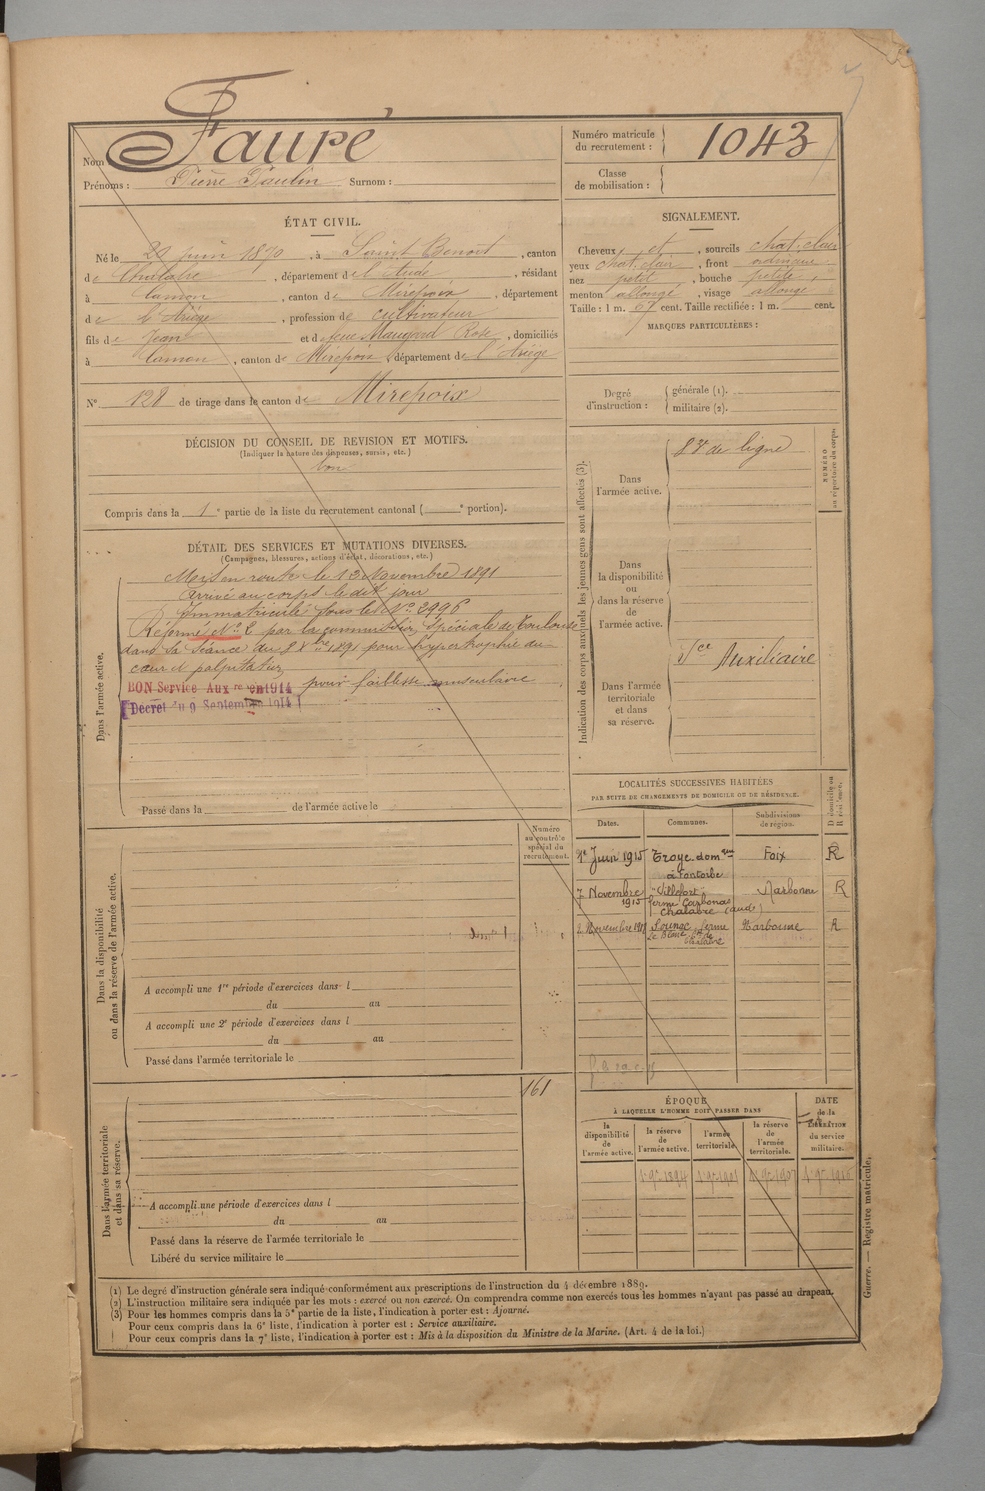 Nom Fauré
Prénoms : Pierre Paulin Surnom :
Numéro matricule du recrutement : 1043
Classe de mobilisation :
ÉTAT CIVIL.
Né le 29 juin 1870, à Saint Benoit, canton
de Chalabre, département de l'Aude, résidant
à Camon, canton de Mirepoix, département
de l'Ariège, profession de cultivateur
fils de Jean et de feue Rose, domiciliés
à Camon, canton de Mirepoix, département de l'Ariège
N° 128 de tirage dans le canton de Mirepoix
SIGNALEMENT.
Cheveux et, sourcils chat. clair
yeux chat. clair, front ordinaire
nez petit, bouche petite,
menton allongé, visage allongé
Taille : 1 m. 67 cent. Taille rectifiée : 1 m. cent.
MARQUES PARTICULIÈRES :
Degré d'instruction : générale (1).
militaire (2).
DÉCISION DU CONSEIL DE REVISION ET MOTIFS.
(Indiquer la nature des dispenses, sursis, etc.)
bon
Compris dans la 1e partie de la liste du recrutement cantonal ( e portion).
DÉTAIL DES SERVICES ET MUTATIONS DIVERSES.
(Campagnes, blessures, actions d'éclat, décorations, etc.)
Dans l'armée active.
Mis en route le 13 Novembre 1891
Arrivé au corps le dit jour
Immatriculé sous le N° 2996
Réformé N° 2 par la commission spéciale de Toulouse
dans sa séance du 8 Xbre 1891 pour hypertrophie du
cœur et palpitations
BON Service Auxre en 1914 pour faiblesse musculaire
Décret du 9 Septembre 1914
Passé dans la de l'armée active le
Indication des corps auxquels les jeunes gens sont affectés (3).
NUMÉRO au répertoire du corps.
Dans l'armée active.
8 de ligne
Dans la disponibilité ou dans la réserve de l'armée active.
Dans l'armée territoriale et dans sa réserve.
Sce Auxiliaire
LOCALITÉS SUCCESSIVES HABITÉES
PAR SUITE DE CHANGEMENTS DE DOMICILE OU DE RÉSIDENCE.
Dates. Communes. Subdivisions de région. D domicile ou R résidence.
1er Juin 1915 Troye domne à Fontorbe Foix R
7 Novembre 1915 "Villefort" ferme Carbonas Chalabre (aude) Narbonne R
2 Novembre Sounac, ferme Narbonne R
Numéro au contrôle spécial du recrutement.
Dans la disponibilité ou dans la réserve de l'armée active.
A accompli une 1re période d'exercices dans l
du au
A accompli une 2e période d'exercices dans l
du au
Passé dans l'armée territoriale le
161
Dans l'armée territoriale et dans sa réserve.
A accompli une période d'exercices dans l
du au
Passé dans la réserve de l'armée territoriale le
Libéré du service militaire le
ÉPOQUE
À LAQUELLE L'HOMME DOIT PASSER DANS
la disponibilité de l'armée active.
la réserve de l'armée active.
l'armée territoriale.
la réserve de l'armée territoriale.
DATE de la LIBÉRATION du service militaire.
1 9re 1894 1 9re 1901 1 9re 1907
Guerre. — Registre matricule.
(1) Le degré d'instruction générale sera indiqué conformément aux prescriptions de l'instruction du 4 décembre 1889.
(2) L'instruction militaire sera indiquée par les mots : exercé ou non exercé. On comprendra comme non exercés tous les hommes n'ayant pas passé au drapeau.
(3) Pour les hommes compris dans la 5e partie de la liste, l'indication à porter est : Ajourné.
Pour ceux compris dans la 6e liste, l'indication à porter est : Service auxiliaire.
Pour ceux compris dans la 7e liste, l'indication à porter est : Mis à la disposition du Ministre de la Marine. (Art. 4 de la loi.)